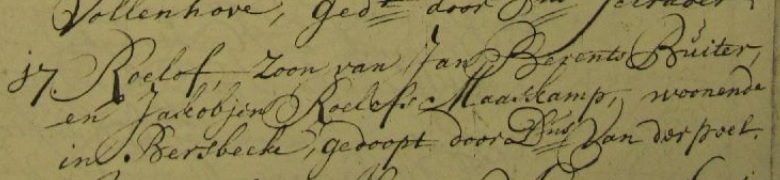 Vollenhove, Ged.t door
17. Roelof, Zoon van Jan Berents Büiter,
en Jakobjen Roelefs Maatkamp, woonende
in Bersbeek, gedoopt door Dns Van der poel.